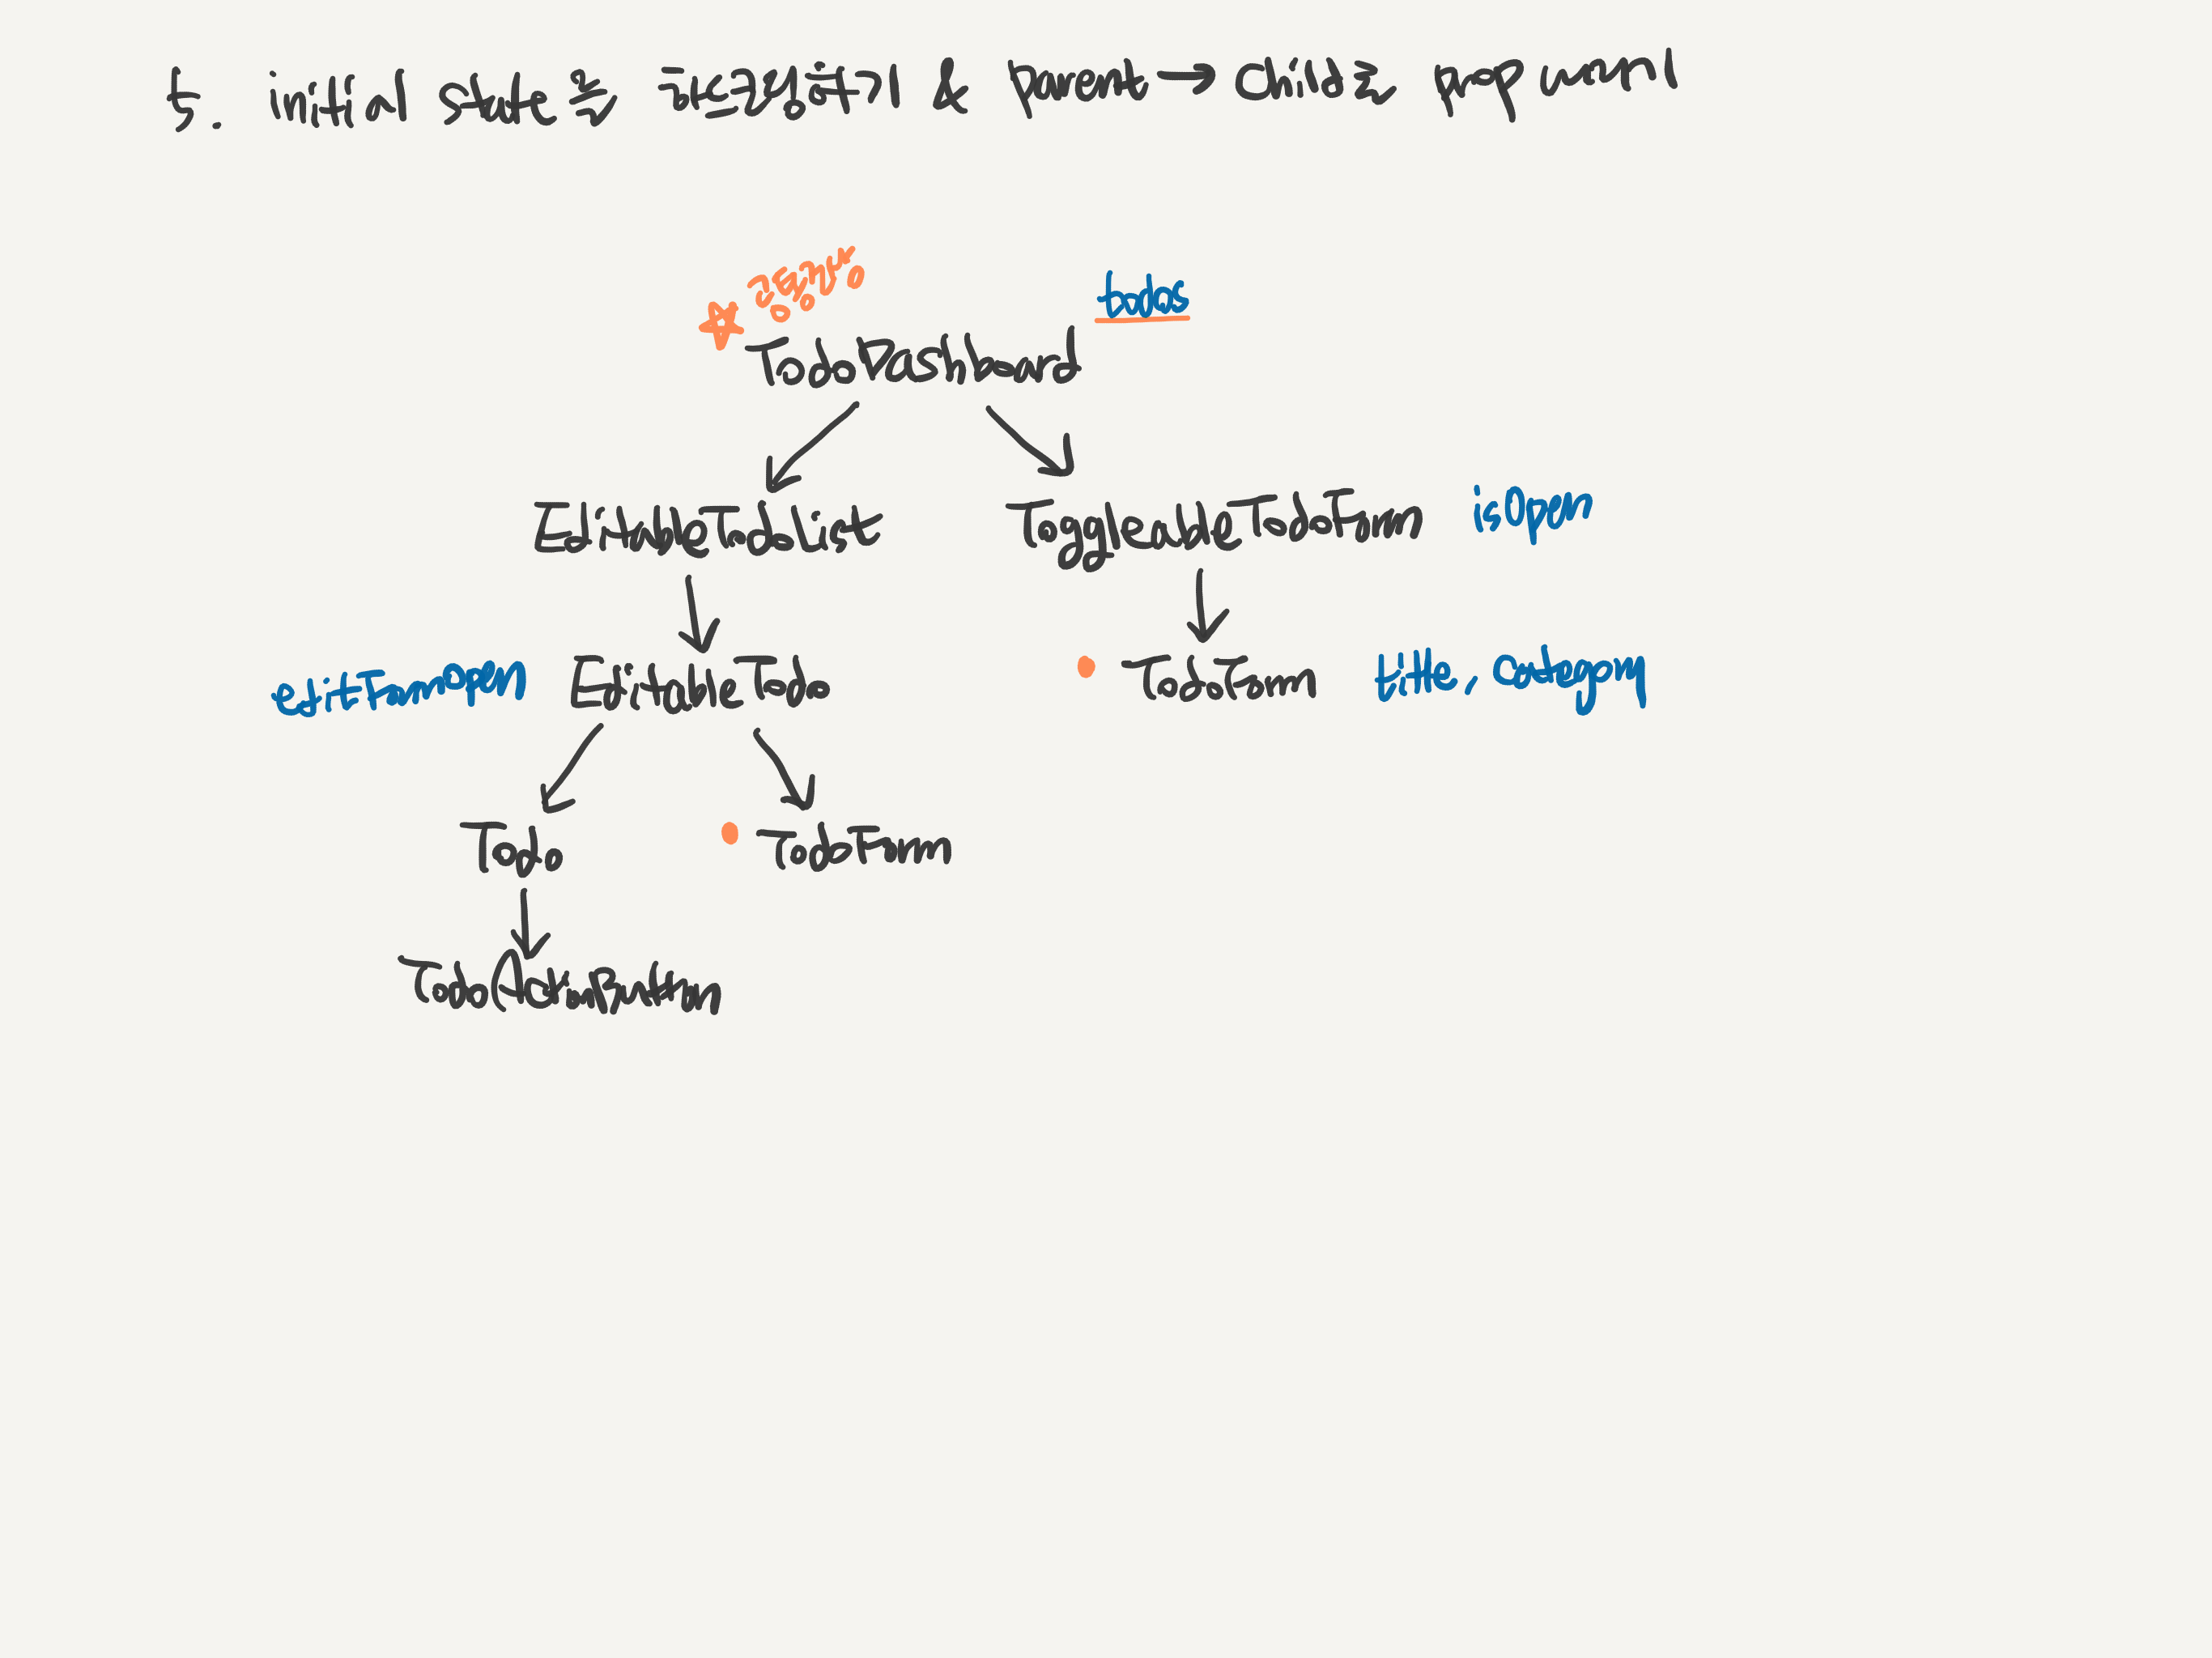 5. initial state를 프로그래밍하기 & Parent → Child로 prop 내려주기
공통부모
todos
TodoDashboard
EditableTodoList
ToggleableTodoForm isOpen
editFormOpen EditableTodo
TodoForm title, category
Todo
TodoForm
TodoActionButton